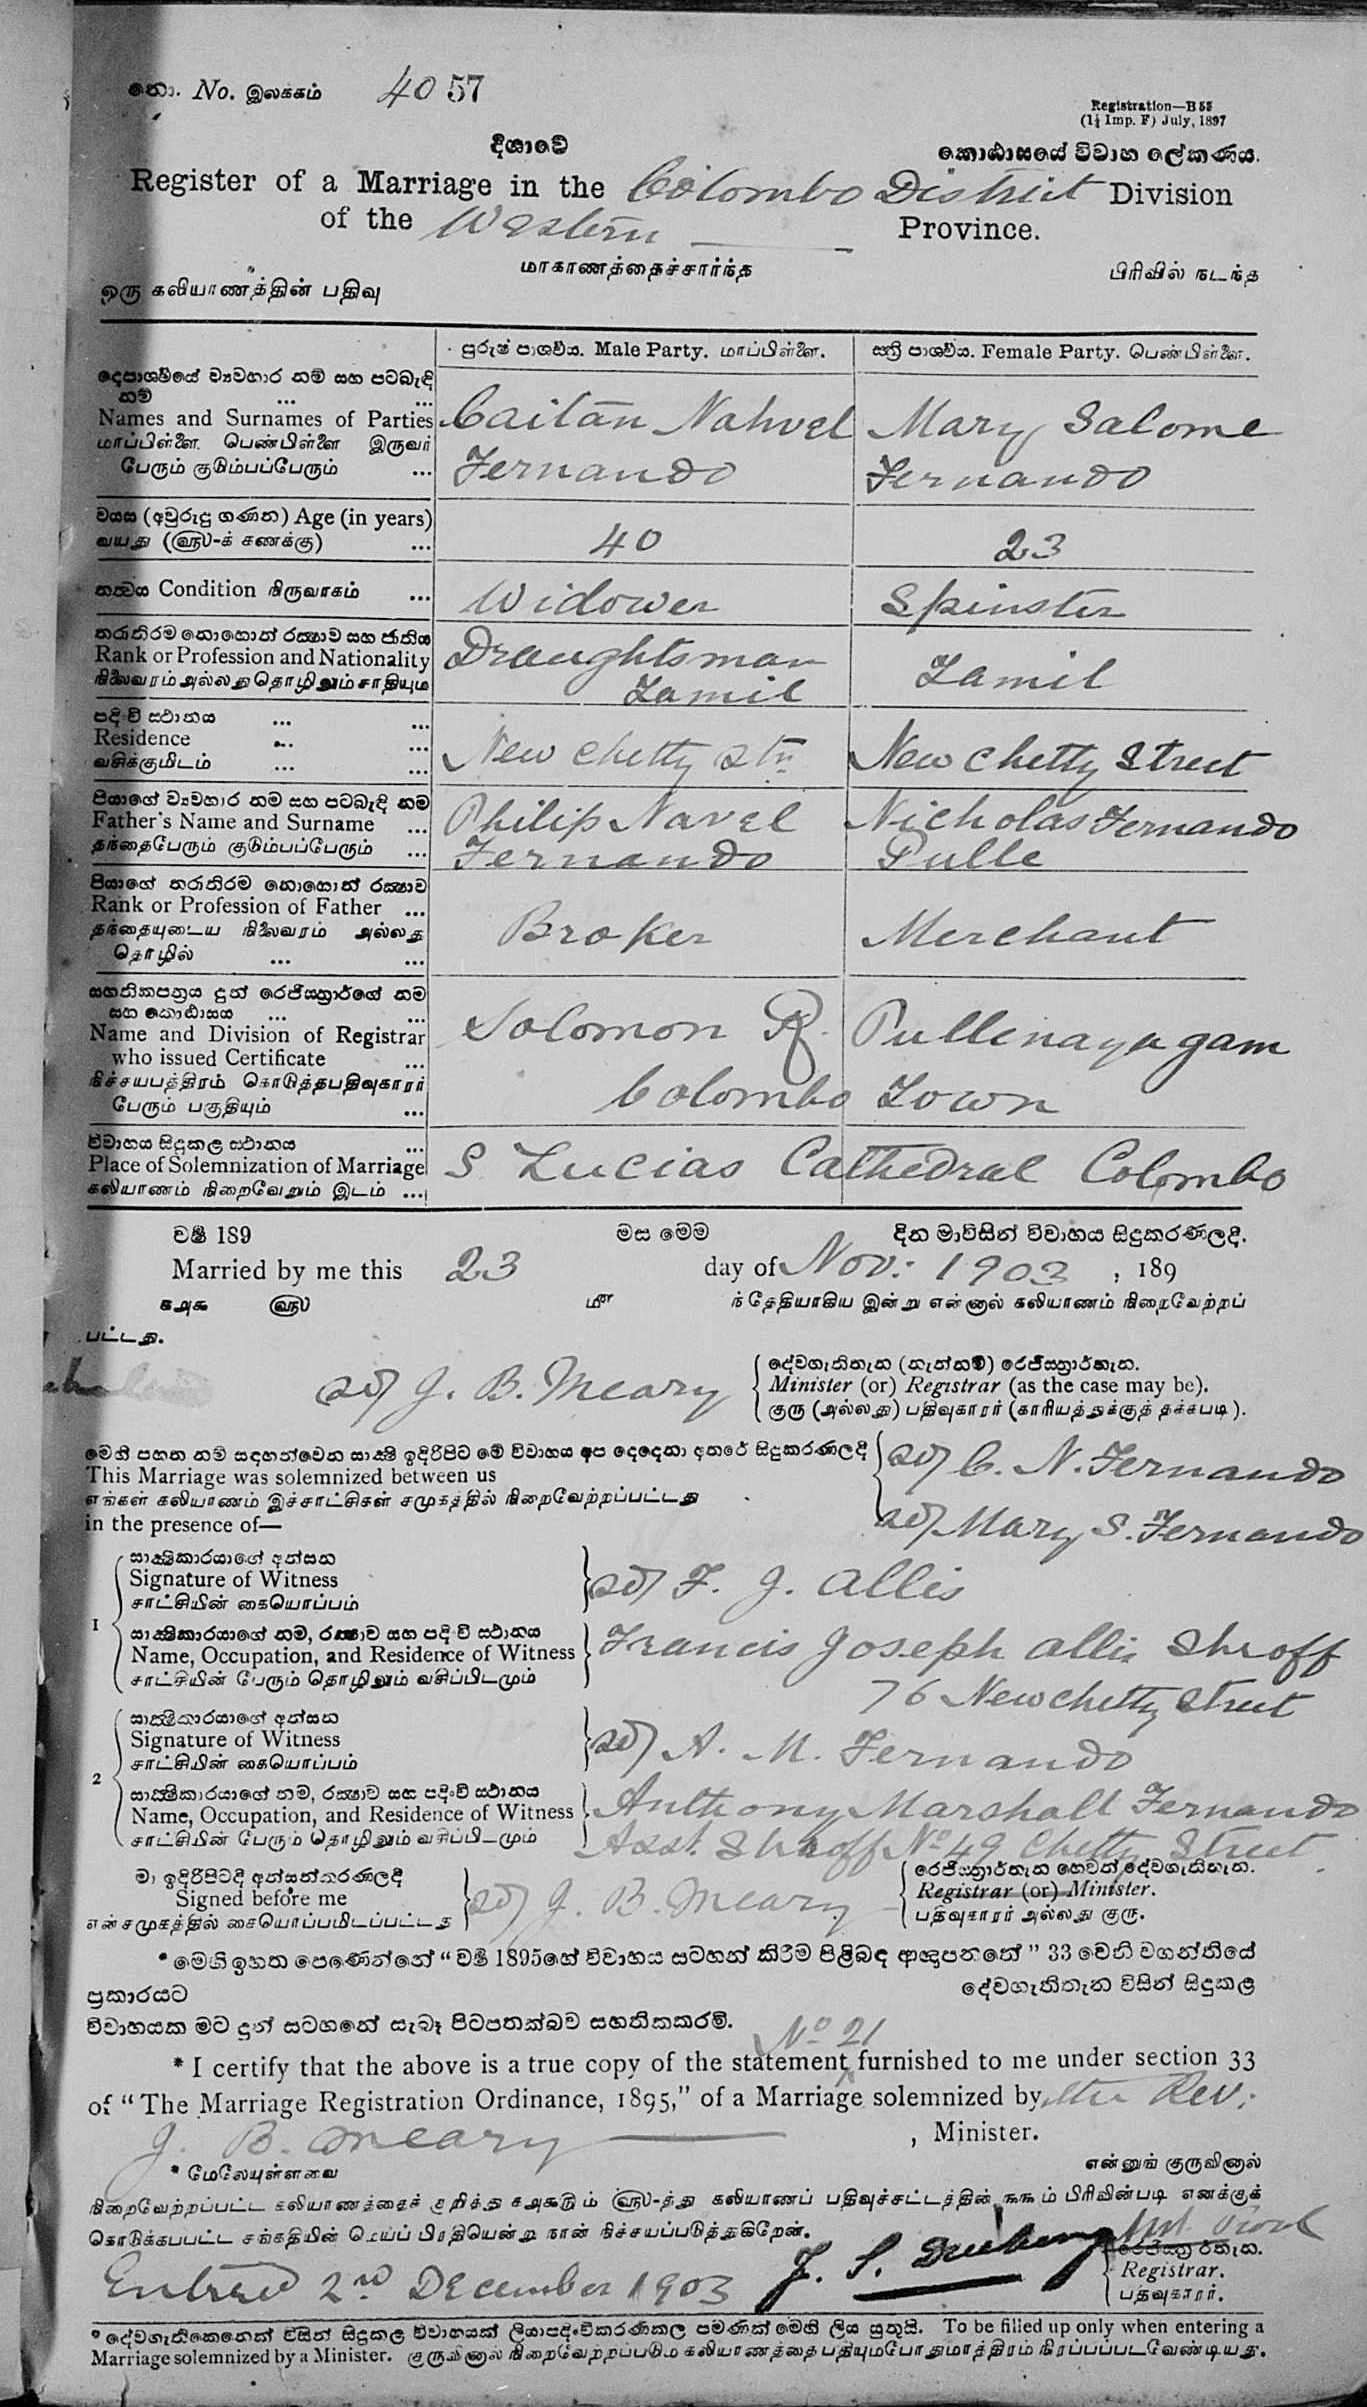 නො. No. இலக்கம் 4057
Registration—B 55
(1½ Imp. F) July, 1897
දිශාවේ කොඨාසයේ විවාහ ලේකණය.
Register of a Marriage in the Colombo District Division
of the Western Province.
மாகாணத்தைச்சார்ந்த பிரிவில் நடந்த
ஒரு கலியாணத்தின் பதிவு
පුරුෂ පාශ්වීය. Male Party. மாப்பிள்ளை. ස්ත්‍රී පාශ්වීය. Female Party. பெண்பிள்ளை.
දෙපාශ්වීයේ ව්‍යවහාර නම් සහ පටබැඳි
නම් ... ...
Names and Surnames of Parties Caitan Nahvel Mary Salome
மாப்பிள்ளை பெண்பிள்ளை இருவர்
பேரும் குடும்பப்பேரும் ... Fernando Fernando
වයස (අවුරුදු ගණන) Age (in years)
வயது (௵-க் கணக்கு) ... 40 23
තත්වය Condition நிருவாகம் ... Widower Spinster
තරාතිරම නොහොත් රක්‍ෂාව සහ ජාතිය
Rank or Profession and Nationality Draughtsman
நிலைவரம் அல்லது தொழிலும் சாதியும் Tamil Tamil
පදිංචි ස්ථානය ... ...
Residence ... ... New Chetty Str New Chetty Street
வசிக்குமிடம் ... ...
පියාගේ ව්‍යවහාර නම සහ පටබැඳි නම
Father's Name and Surname ... Philip Navel Nicholas Fernando
தந்தைபேரும் குடும்பப்பேரும் ... Fernando Pulle
පියාගේ තරාතිරම නොහොත් රක්‍ෂාව
Rank or Profession of Father ... Broker Merchant
தந்தையுடைய நிலைவரம் அல்லது
தொழில் ... ...
සහතිකපත්‍රය දුන් රෙජිස්ත්‍රාර්ගේ නම
සහ කොඨාසය ... ...
Name and Division of Registrar Solomon R. Pullenayagam
who issued Certificate ...
நிச்சயபத்திரம் கொடுத்தபதிவுகாரர் Colombo Town
பேரும் பகுதியும் ...
විවාහය සිදුකළ ස්ථානය ...
Place of Solemnization of Marriage S Lucias Cathedral Colombo
கலியாணம் நிறைவேறும் இடம் ...
වර්‍ෂ 189 මස මෙම දින මාවිසින් විවාහය සිදුකරණලදි.
Married by me this 23 day of Nov: 1903, 189
௧௮௯ ௵ ௴ ந்தேதியாகிய இன்று என்னால் கலியாணம் நிறைவேற்றப்
பட்டது.
දේවගැතිතැන (නැත්නම්) රෙජිස්ත්‍රාර්තැන.
J. B. Meary Minister (or) Registrar (as the case may be).
குரு (அல்லது) பதிவுகாரர் (காரியத்துக்குத் தக்கபடி).
මෙහි පහත නම් සඳහන්වෙන සාක්‍ෂි ඉදිරිපිට මේ විවාහය අප දෙදෙනා අතරේ සිදුකරණලදි
This Marriage was solemnized between us C. N. Fernando
எங்கள் கலியாணம் இச்சாட்சிகள் சமுகத்தில் நிறைவேற்றப்பட்டது
in the presence of— Mary S. Fernando
සාක්‍ෂිකාරයාගේ අත්සන
Signature of Witness F. J. Allis
சாட்சியின் கையொப்பம்
1 සාක්‍ෂිකාරයාගේ නම, රක්‍ෂාව සහ පදිංචි ස්ථානය
Name, Occupation, and Residence of Witness Francis Joseph Allis Shroff
சாட்சியின் பேரும் தொழிலும் வசிப்பிடமும் 76 New Chetty Street
සාක්‍ෂිකාරයාගේ අත්සන
Signature of Witness A. M. Fernando
சாட்சியின் கையொப்பம்
2 සාක්‍ෂිකාරයාගේ නම, රක්‍ෂාව සහ පදිංචි ස්ථානය
Name, Occupation, and Residence of Witness Anthony Marshall Fernando
சாட்சியின் பேரும் தொழிலும் வசிப்பிடமும் Asst. Shroff No 49 Chetty Street
මා ඉදිරිපිටදී අත්සන්කරණලදී රෙජිස්ත්‍රාර්තැන හෙවත් දේවගැතිතැන.
Signed before me J. B. Meary Registrar (or) Minister.
என் சமுகத்தில் கையொப்பமிடப்பட்டது பதிவுகாரர் அல்லது குரு.
* මෙහි ඉහත පෙණෙන්නේ “වර්‍ෂ 1895හේ විවාහය සටහන් කිරීම පිළිබඳ ආඥාපනතේ” 33 වෙනි වගන්තියේ
ප්‍රකාරයට දේවගැතිතැන විසින් සිදුකළ
විවාහයක මට දුන් සටහනේ සැබෑ පිටපතක්බව සහතිකකරමි.
No 21
* I certify that the above is a true copy of the statement furnished to me under section 33
of “The Marriage Registration Ordinance, 1895,” of a Marriage solemnized by the Rev:
J. B. Meary , Minister.
* மேலேயுள்ளவை என்னுங் குருவினால்
நிறைவேற்றப்பட்ட கலியாணத்தைக் குறித்து ௧௮௯௫ம் ௵-த்து கலியாணப் பதிவுச்சட்டத்தின் ௩௩ம் பிரிவின்படி எனக்குக்
கொடுக்கப்பட்ட சங்கதியின் மெய்ப் பிரதியென்று நான் நிச்சயப்படுத்துகிறேன்.
රෙජිස්ත්‍රාර්තැන.
Entered 2nd December 1903 J. S. Registrar.
பதிவுகாரர்.
* දේවගැතිකෙනෙක් විසින් සිදුකළ විවාහයක් ලියාපදිංචිකරණකල පමණක් මෙහි ලිය යුතුයි. To be filled up only when entering a
Marriage solemnized by a Minister. குருவினால் நிறைவேற்றப்படும் கலியாணத்தை பதியும்போதுமாத்திரம் நிரப்பப்படவேண்டியது.